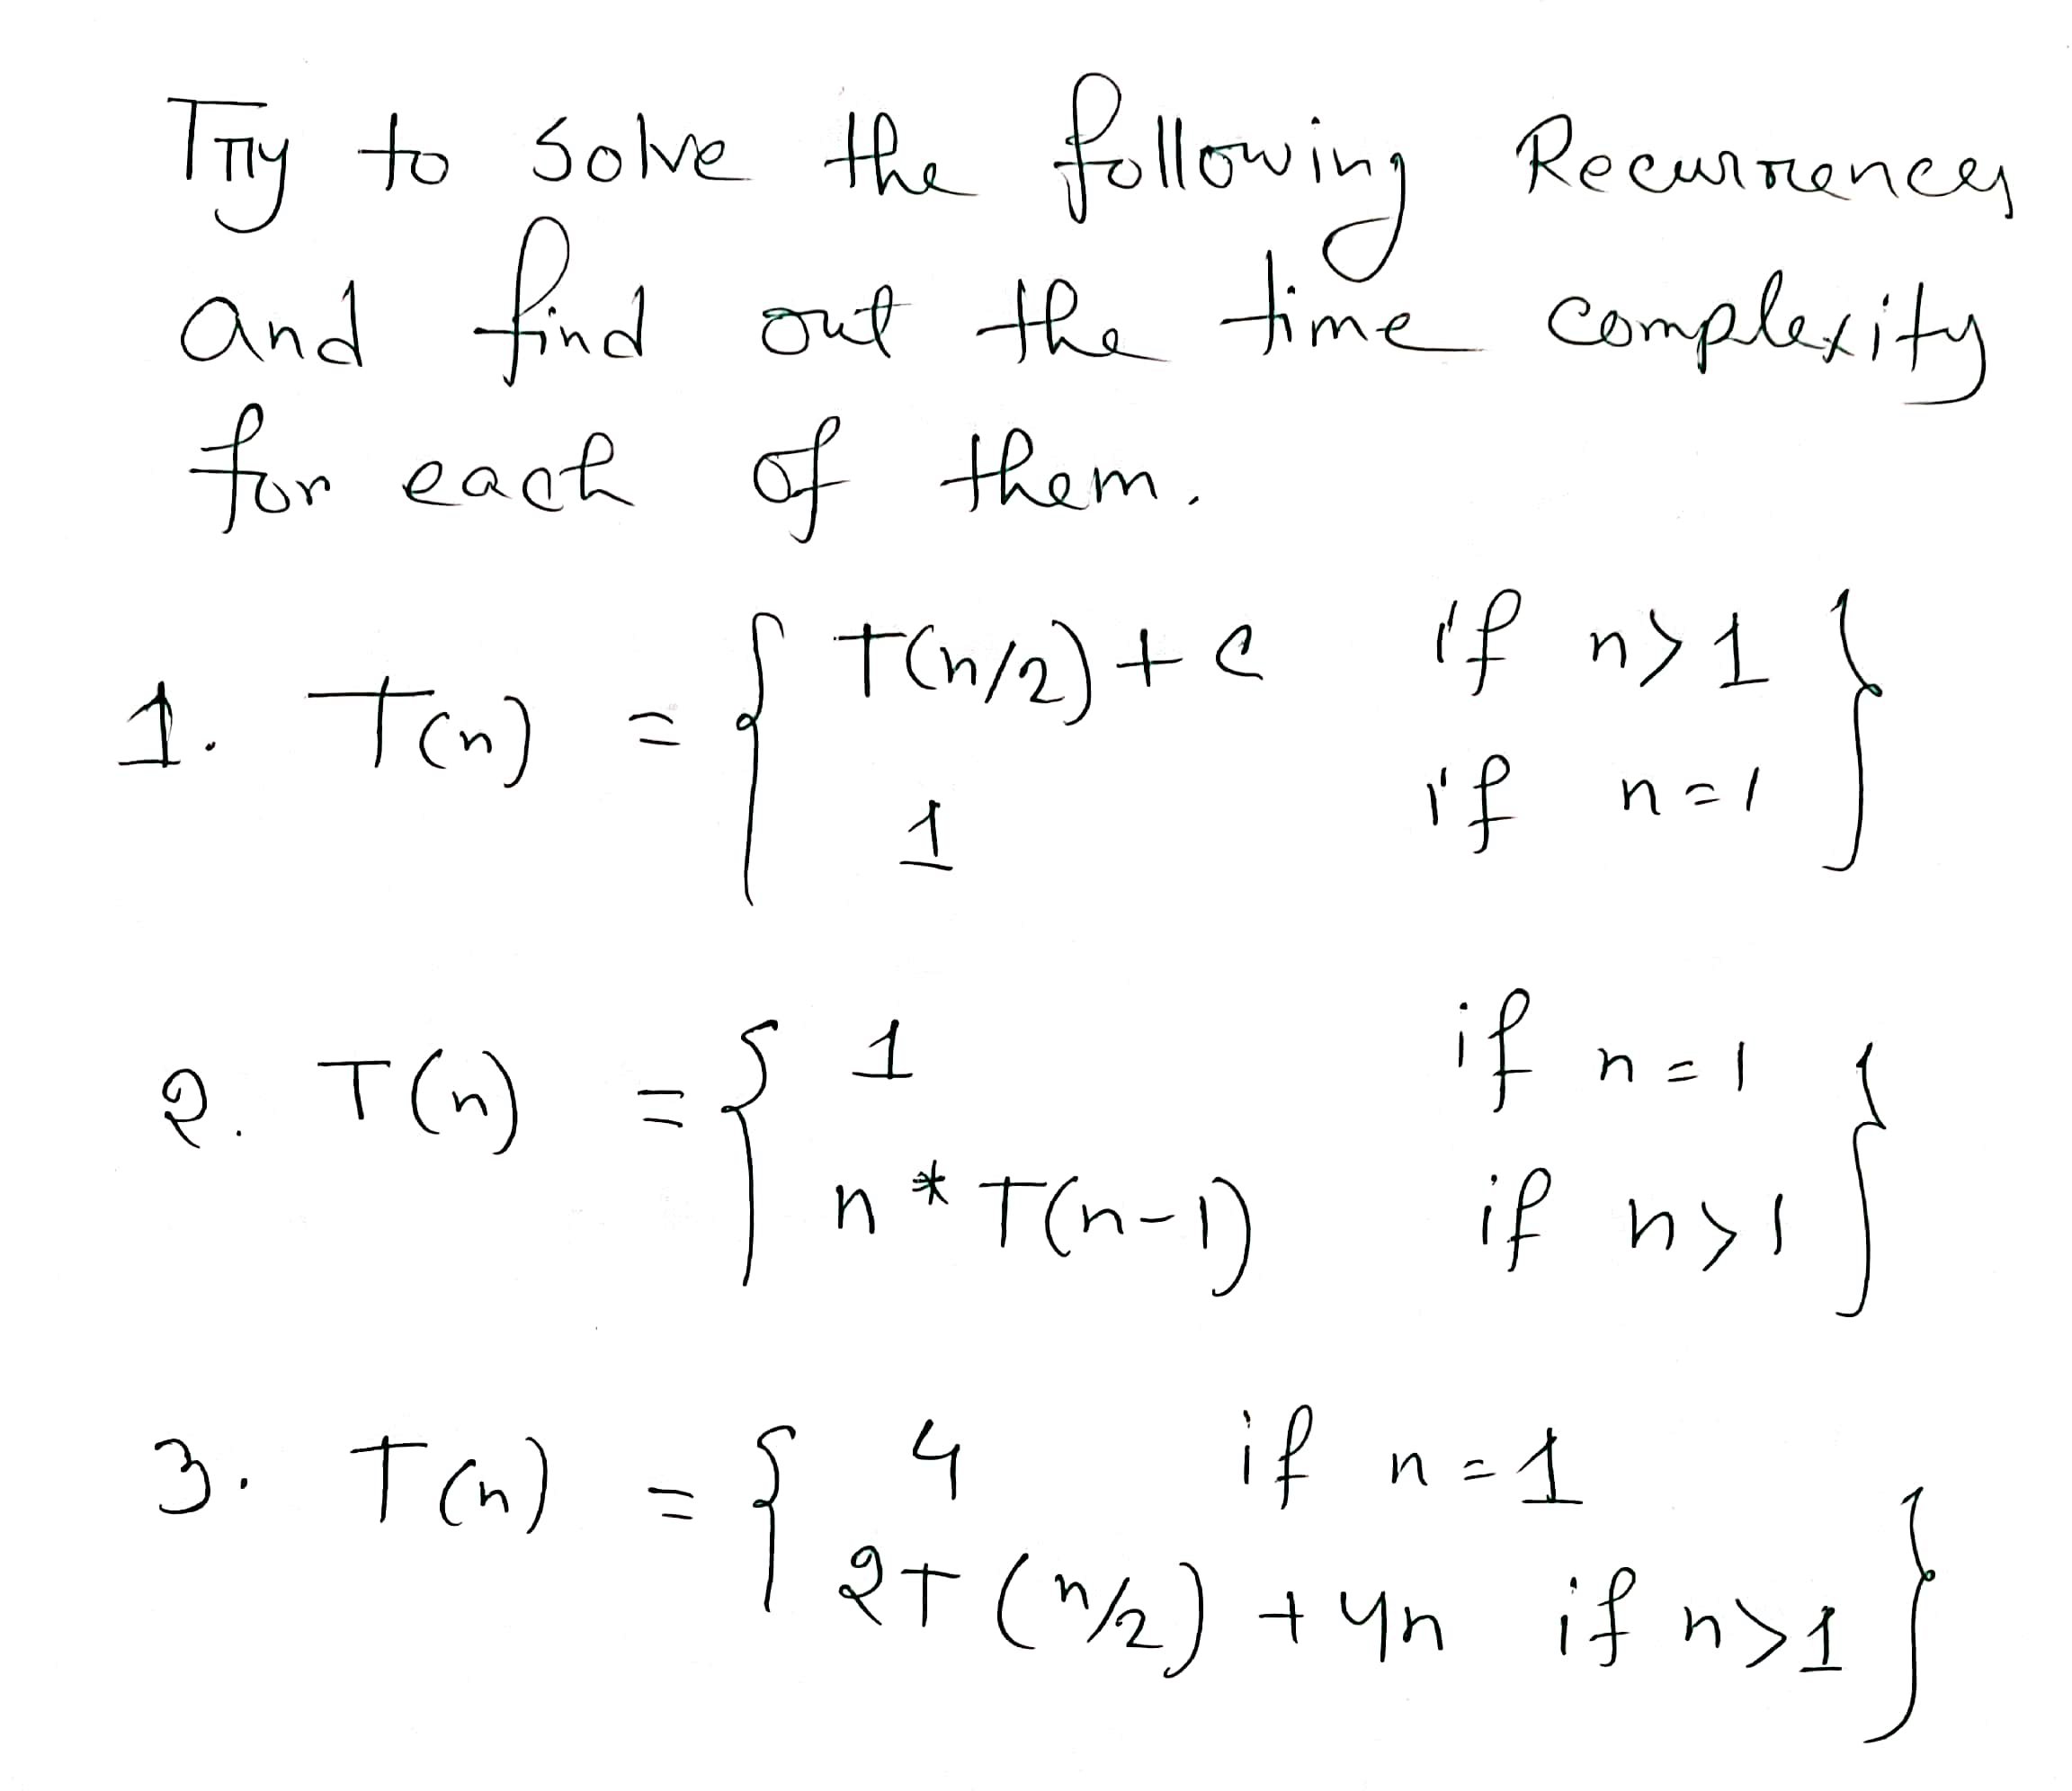 Try to solve the following Recurrences
and find out the time complexity
for each of them.
1. T(n) = { T(n/2) + c if n > 1 }
1 if n = 1
2. T(n) = { 1 if n = 1 }
n * T(n-1) if n > 1
3. T(n) = { 4 if n = 1
2T(n/2) + 4n if n > 1 }